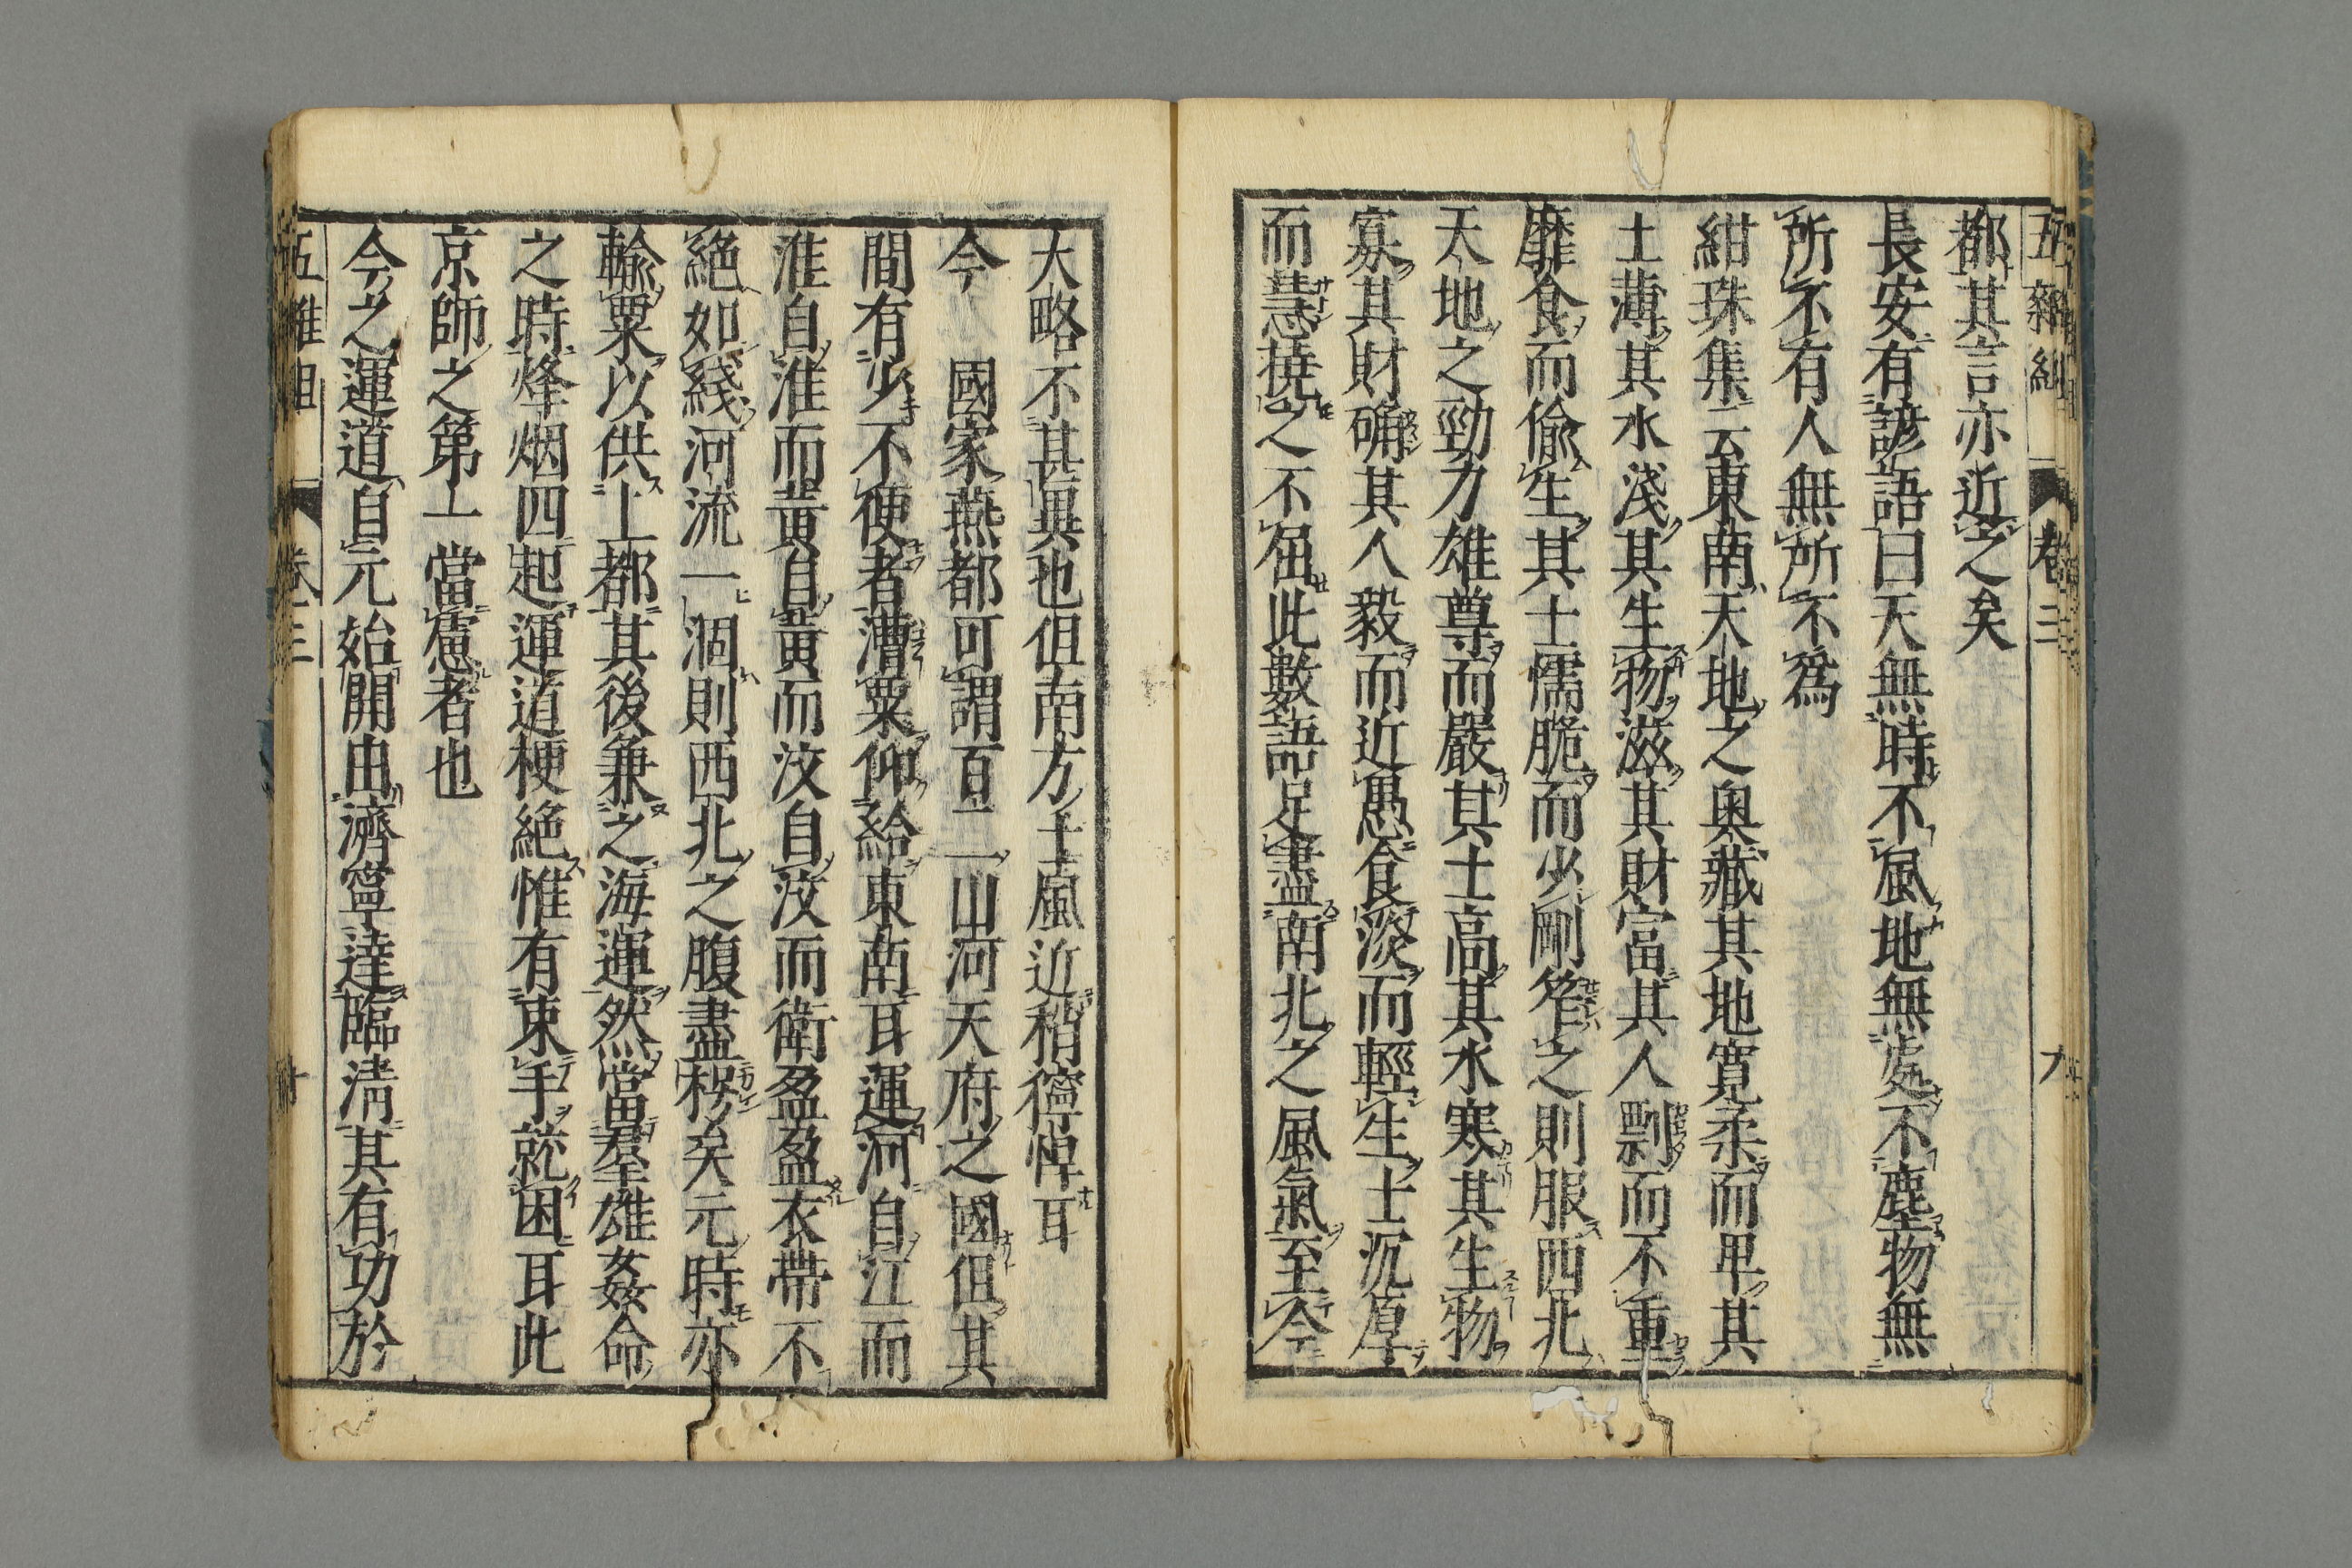 五雜組 卷三 九
都其言亦近之矣
長安有諺語曰天無時不風地無處不塵物無
所不有人無所不爲
紺珠集云東南天地之奥藏其地寬柔而卑其
土薄其水淺其生物滋其財富其人剽而不重
靡食而偸生其士懦脆而少剛笮之則服西北
天地之勁力雄尊而嚴其土高其水寒其生物
寡其財确其人毅而近愚食淡而輕生士沉厚
而慧撓之不屈此數語足盡南北之風氣至今
大略不甚異也但南方土風近稍獰悍耳
今 國家燕都可謂百二山河天府之國但其
間有少不便者漕粟仰給東南耳運河自江而
淮自淮而黄自黄而汶自汶而衛盈盈衣帶不
絶如綫河流一涸則西北之腹盡枵矣元時亦
輸粟以供上都其後兼之海運然當羣雄姦命
之時烽烟四起運道梗絶惟有束手就困耳此
京師之第一當慮者也
今之運道自元始開由濟寧達臨淸其有功於
五雜組 卷三 十